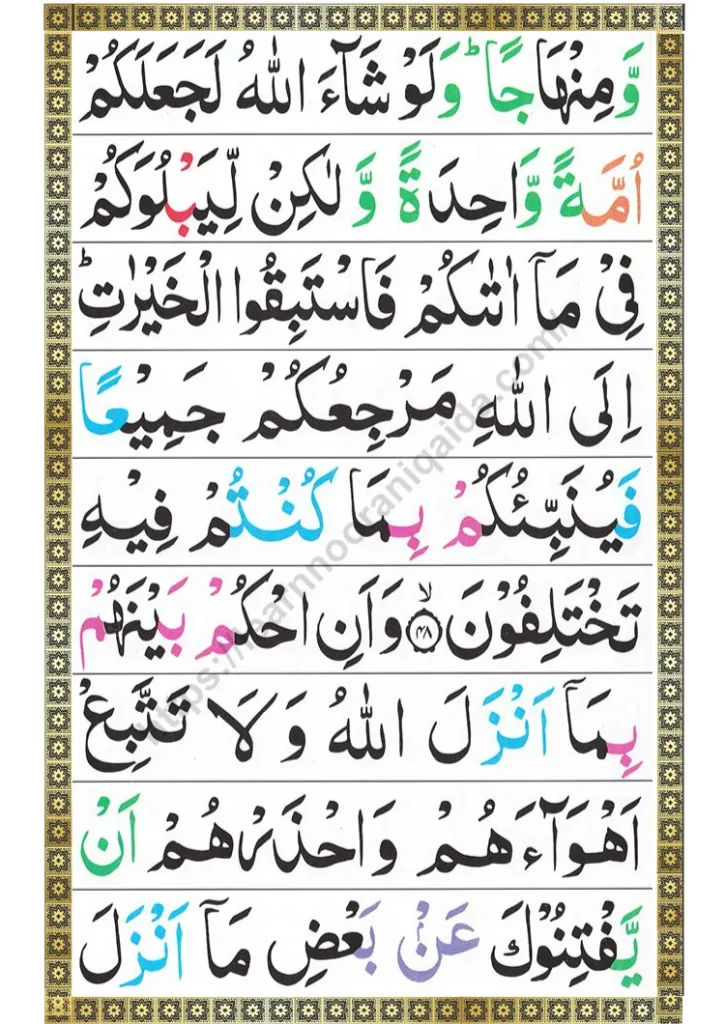 وَّمِنْهَاجًا ؕ وَلَوْ شَآءَ اللّٰهُ لَجَعَلَكُمْ
اُمَّةً وَّاحِدَةً وَّ لٰكِنْ لِّيَبْلُوَكُمْ
فِیْ مَاۤ اٰتٰىكُمْ فَاسْتَبِقُوا الْخَيْرٰتِ ؕ
اِلَی اللّٰهِ مَرْجِعُكُمْ جَمِيْعًا
فَيُنَبِّئُكُمْ بِمَا كُنْتُمْ فِيْهِ
تَخْتَلِفُوْنَ ۙ‏﴿۴۸﴾ وَاَنِ احْكُمْ بَيْنَهُمْ
بِمَاۤ اَنْزَلَ اللّٰهُ وَ لَا تَتَّبِعْ
اَهْوَآءَهُمْ وَاحْذَرْهُمْ اَنْ
يَّفْتِنُوْكَ عَنْۢ بَعْضِ مَاۤ اَنْزَلَ
https://learnnooraniqaida.com/